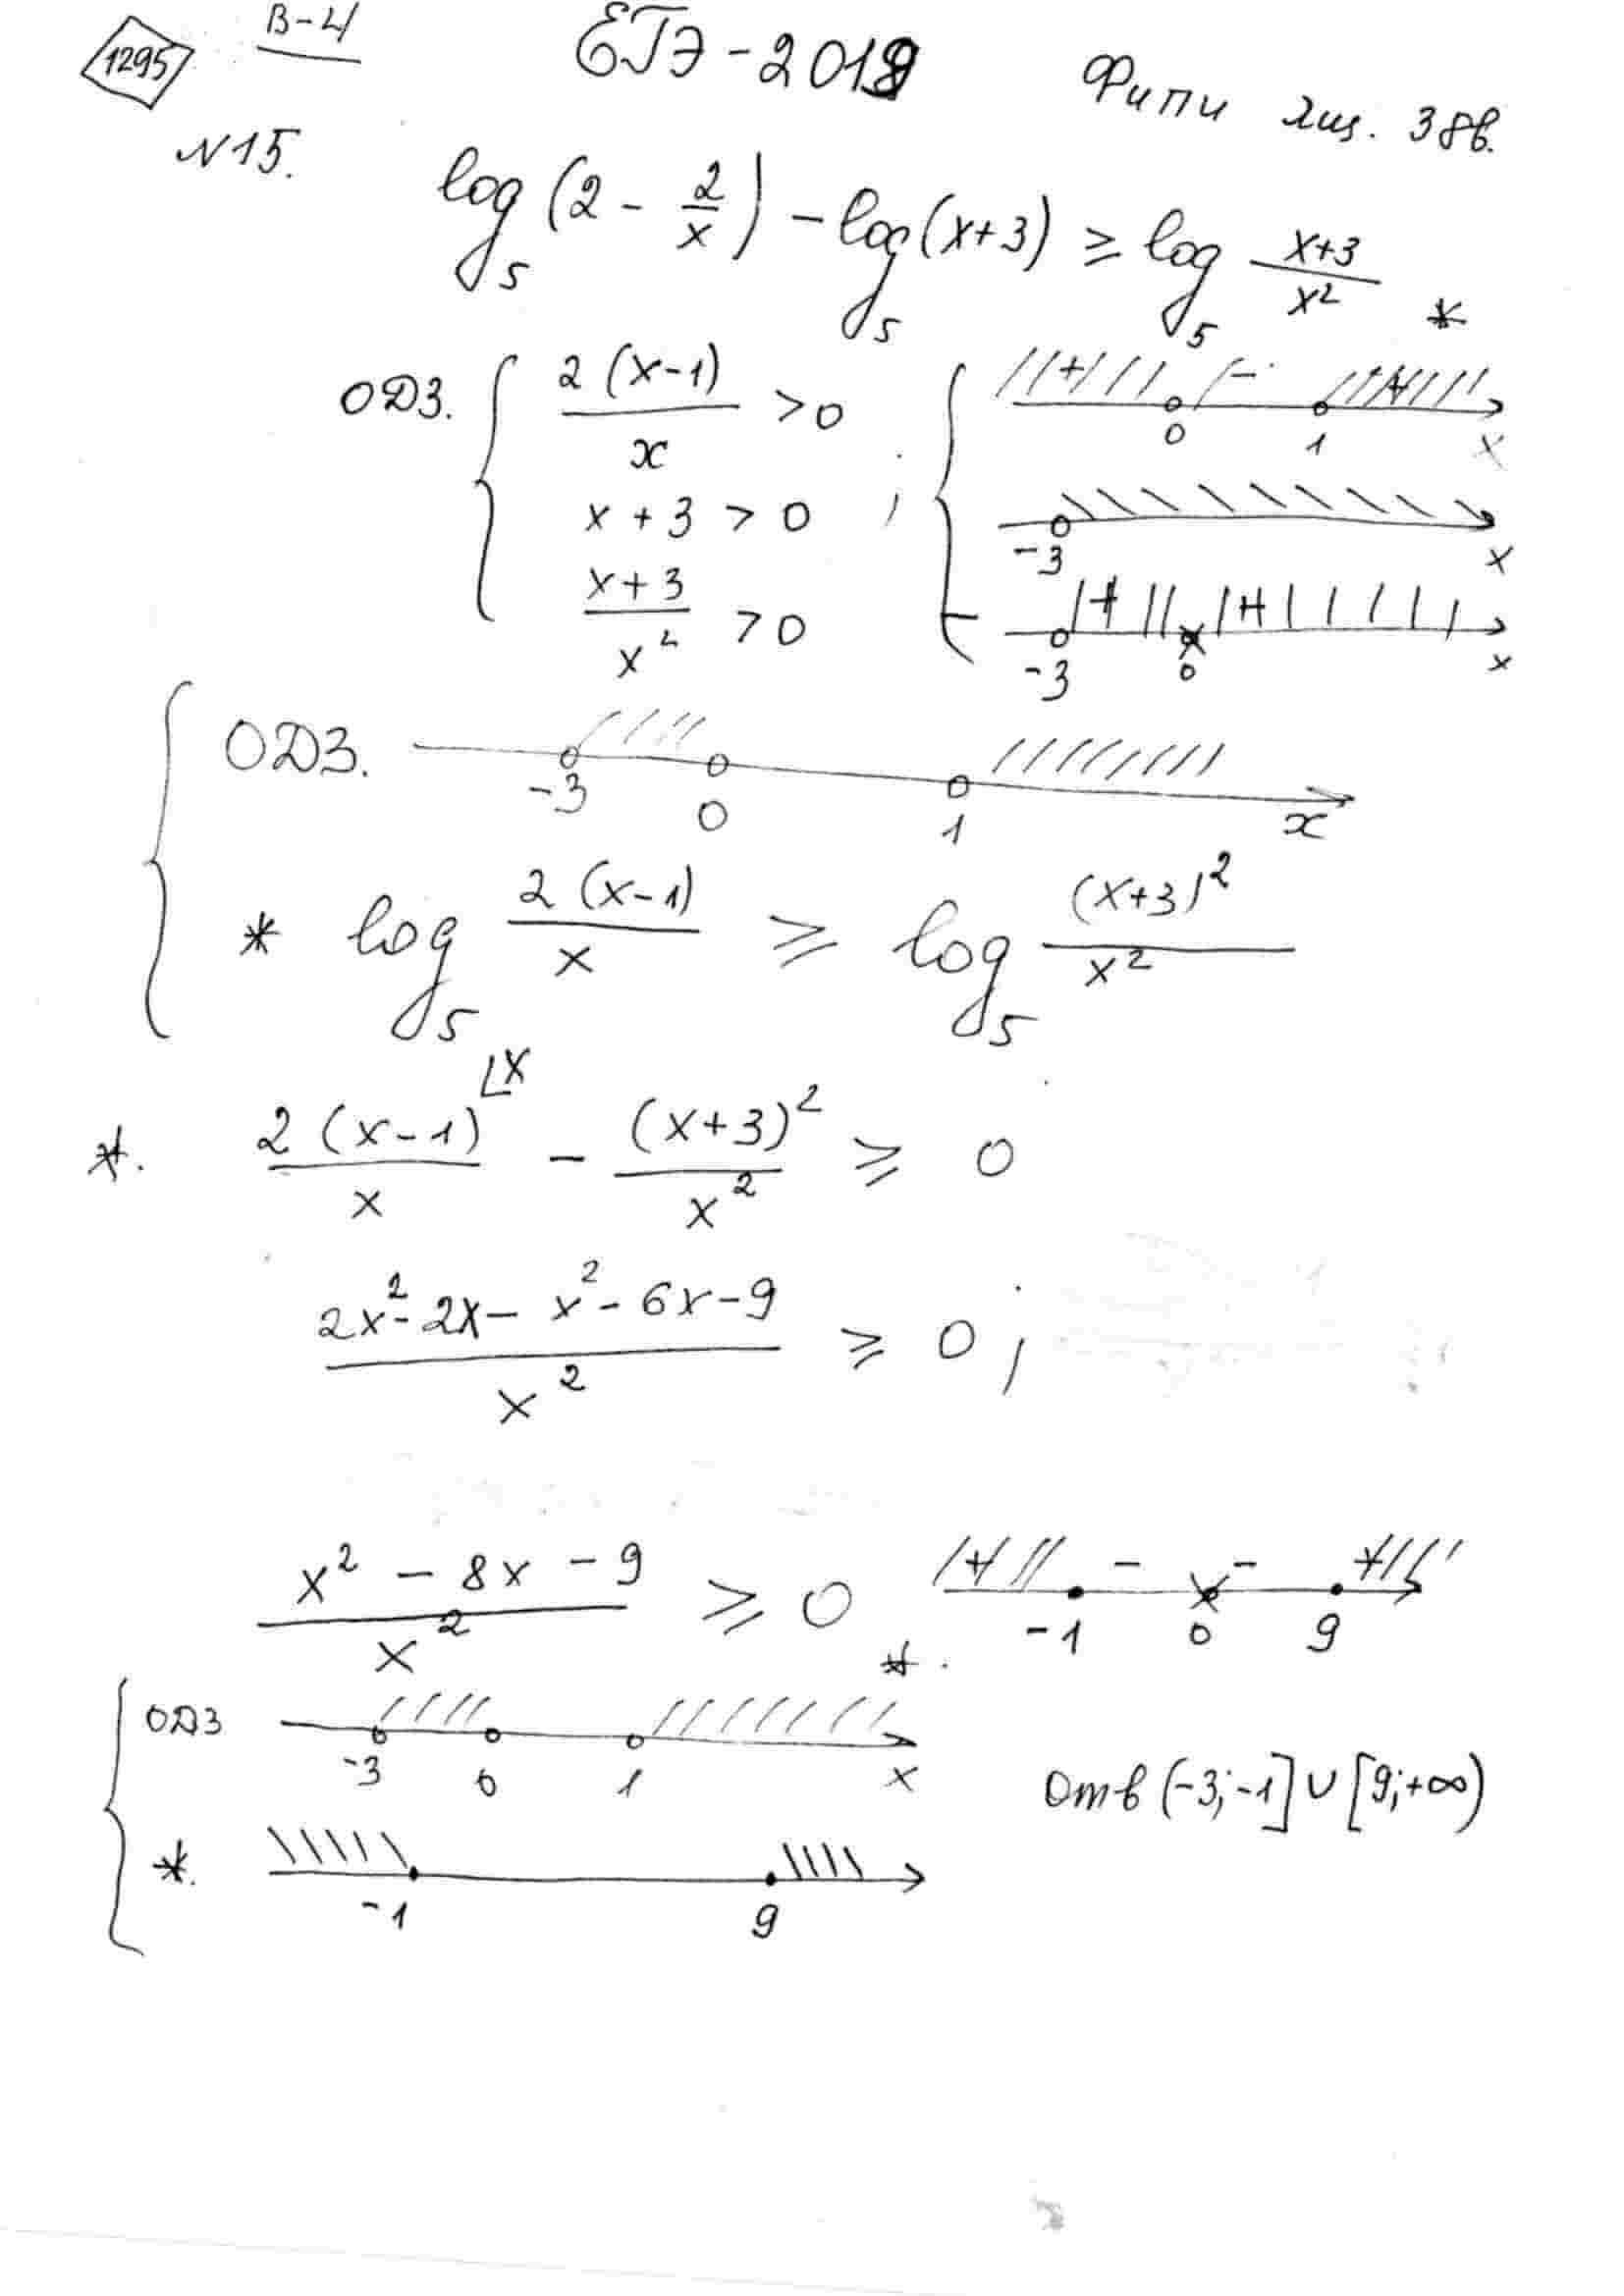 1295 В-4 ЕГЭ-2019 Фипи лиц. 38в.
N15.
log₅(2 - 2/x) - log₅(x+3) ≥ log₅ (x+3)/x² *
ОДЗ. { 2(x-1)/x > 0 ; + 0 - 1 + x
x + 3 > 0 -3 x
(x+3)/x² > 0 - -3 + 0 + x
{ ОДЗ. -3 0 1 x
* log₅ 2(x-1)/x ≥ log₅ (x+3)²/x²
*. 2(x-1)⌊x/x - (x+3)²/x² ≥ 0
(2x² - 2x - x² - 6x - 9)/x² ≥ 0 ;
(x² - 8x - 9)/x² ≥ 0 *. + -1 - 0 - 9 +
{ ОДЗ -3 0 1 x
Отв (-3;-1] ∪ [9;+∞)
*. -1 9